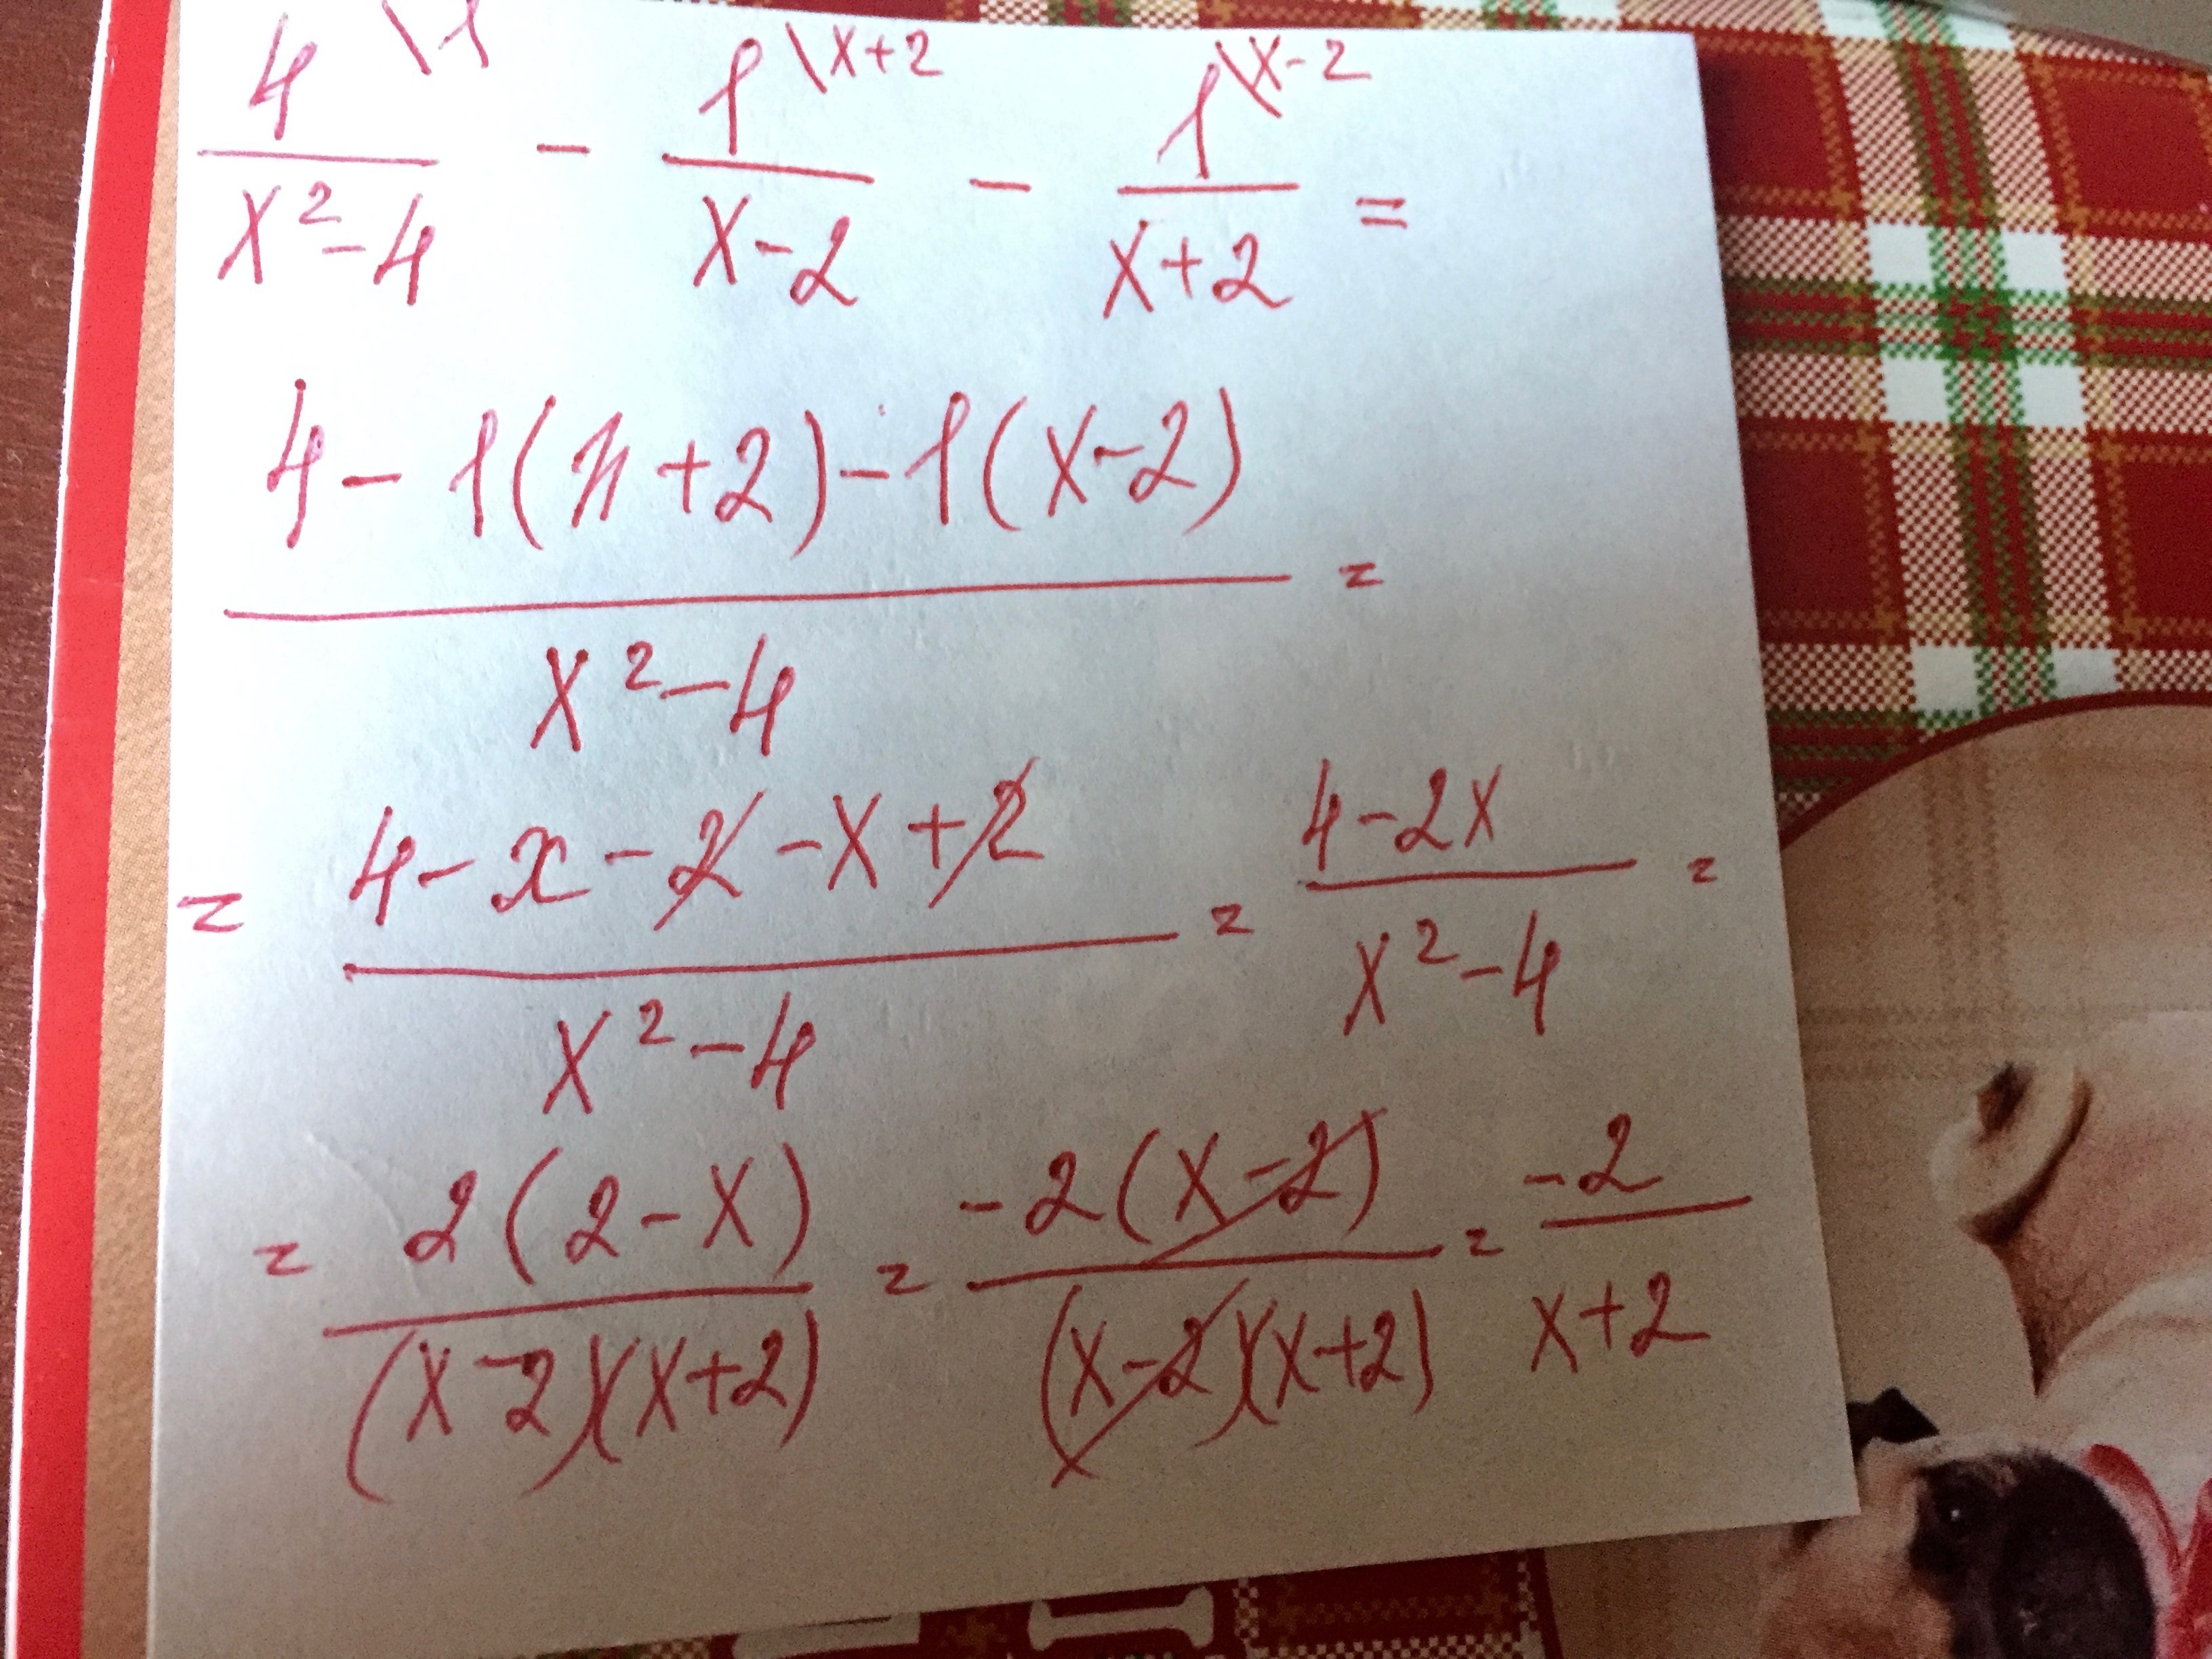 4\1 / x²-4 - 1\x+2 / x-2 - 1\x-2 / x+2 =
4 - 1(x+2) - 1(x-2) / x²-4 =
= 4 - x - 2 - x + 2 / x²-4 = 4-2x / x²-4 =
= 2(2-x) / (x-2)(x+2) = -2(x-2) / (x-2)(x+2) = -2 / x+2